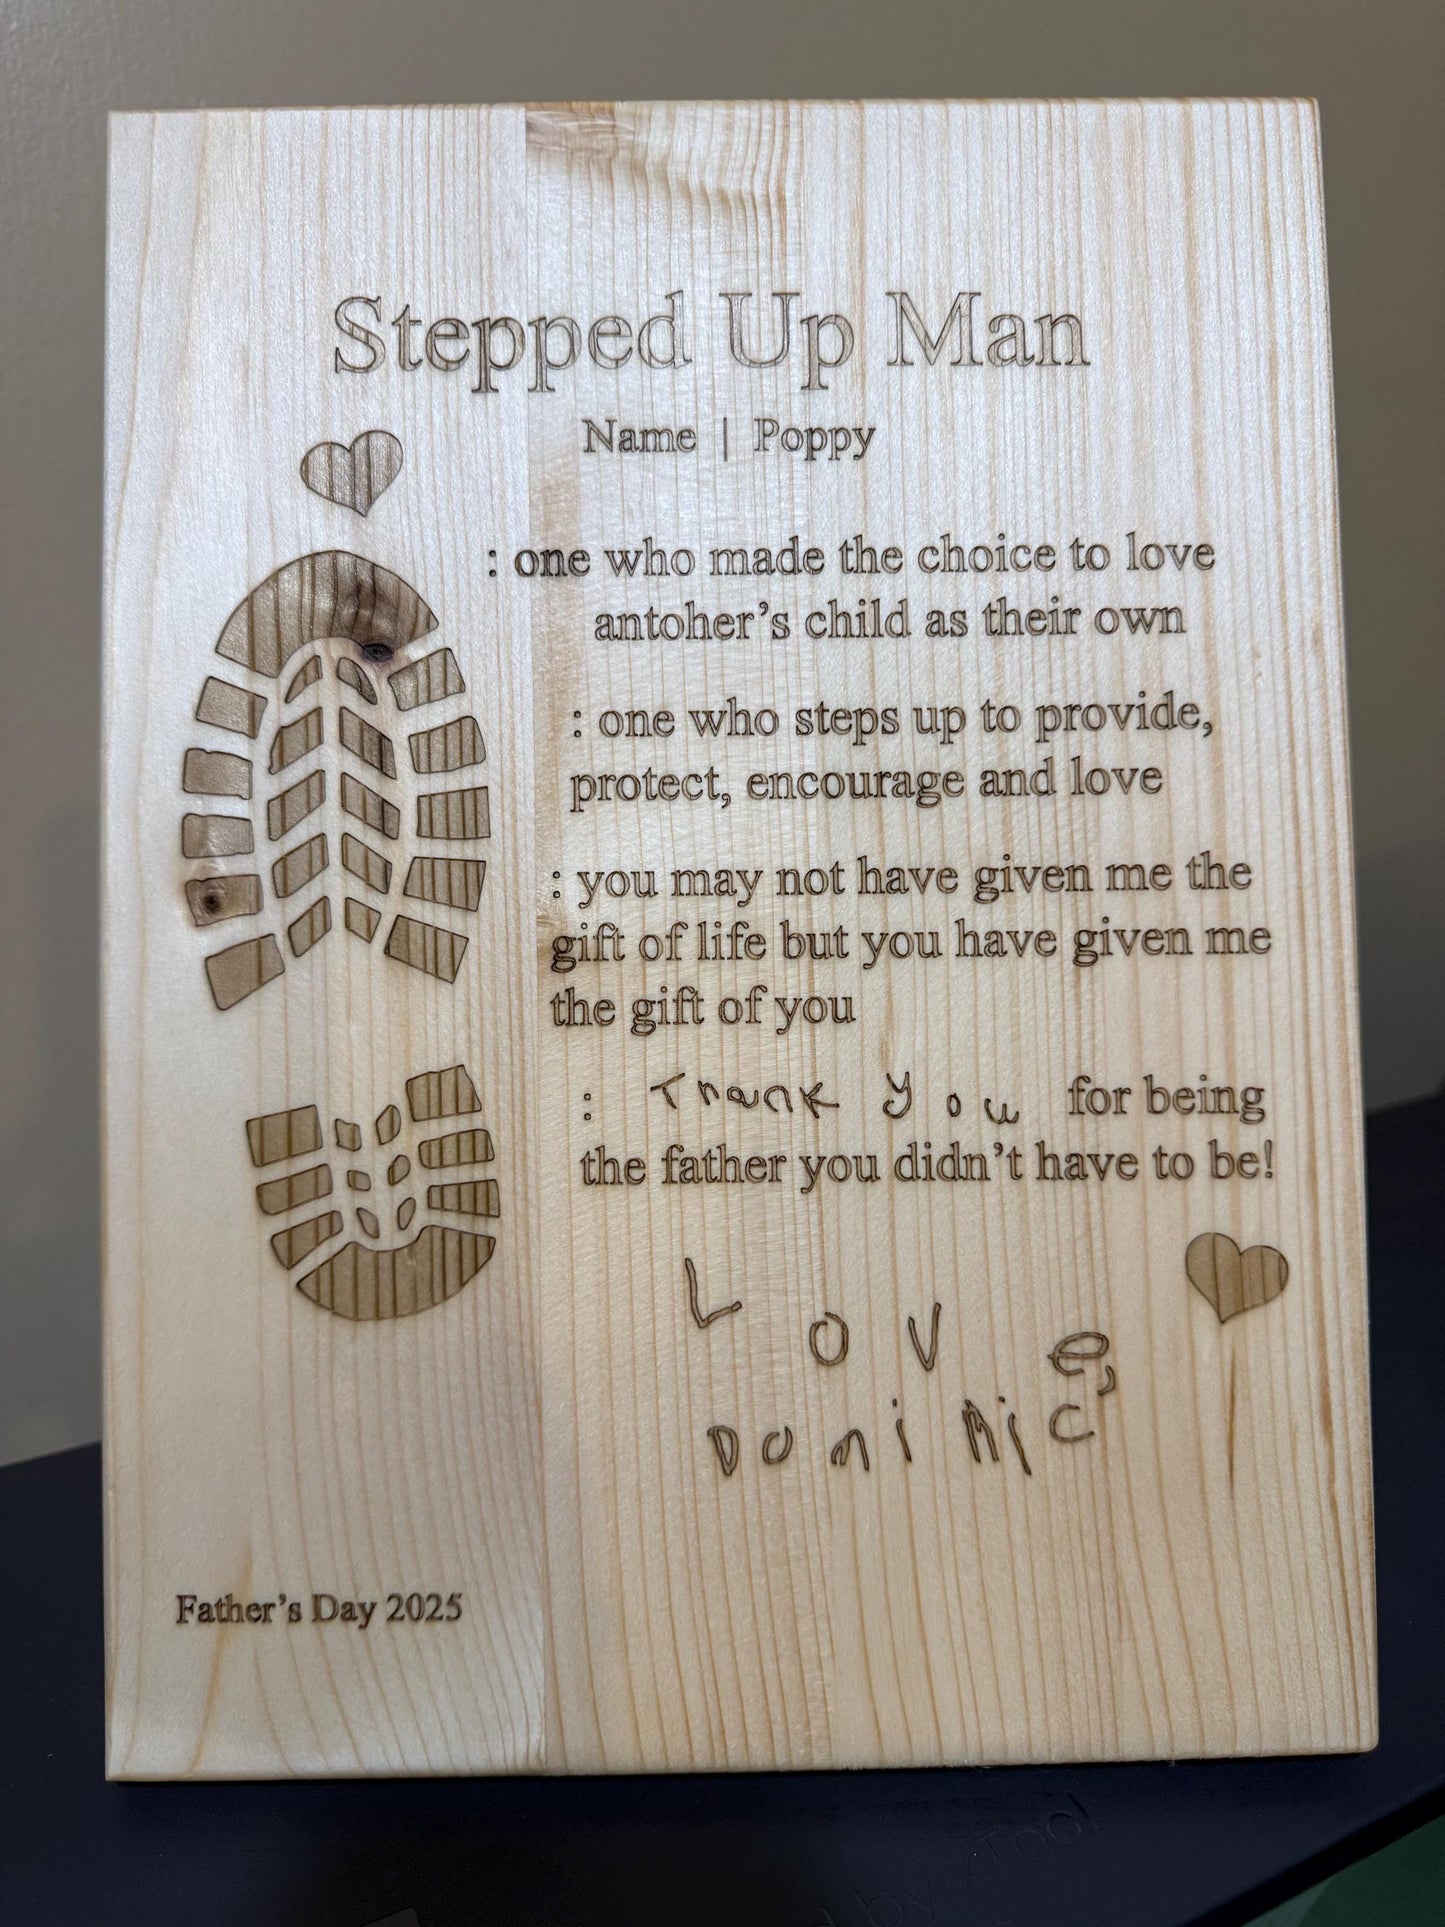 Stepped Up Man
Name | Poppy
: one who made the choice to love
antoher's child as their own
: one who steps up to provide,
protect, encourage and love
: you may not have given me the
gift of life but you have given me
the gift of you
: Thank you for being
the father you didn't have to be!
Love,
Dominic
Father's Day 2025
by xTool